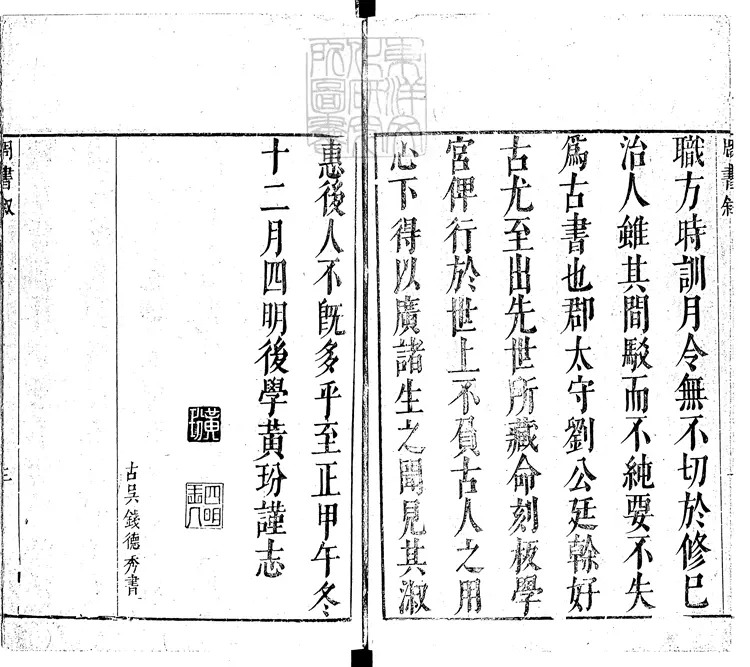 職方時訓月令無不切於修巳
治人雖其間駁而不純要不失
爲古書也郡太守劉公廷榦好
古尤至出先世所藏命刻板學
宮俾行於世上不負古人之用
心下得以廣諸生之聞見其淑
惠後人不旣多乎至正甲午冬
十二月四明後學黃玢謹志
黃玢
古吳錢德秀書
周書敘
三